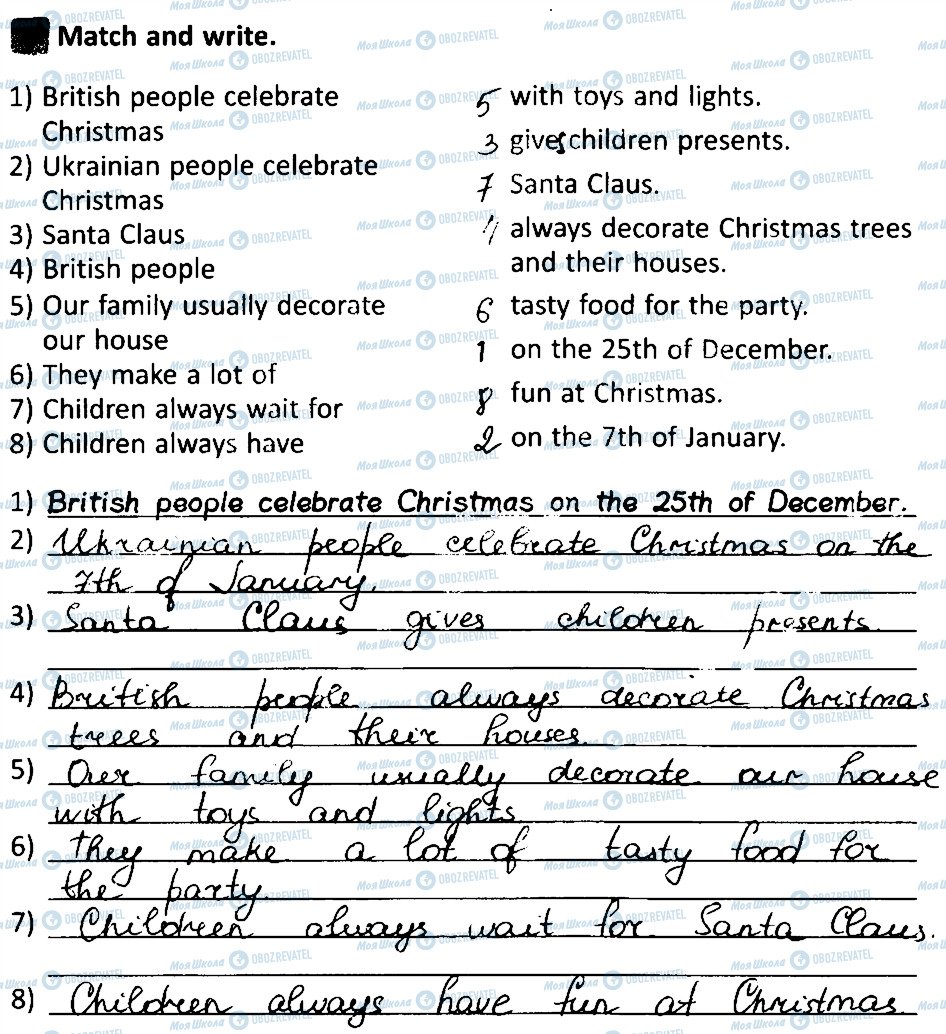 Match and write.
1) British people celebrate
Christmas
2) Ukrainian people celebrate
Christmas
3) Santa Claus
4) British people
5) Our family usually decorate
our house
6) They make a lot of
7) Children always wait for
8) Children always have
5 with toys and lights.
3 gives children presents.
7 Santa Claus.
4 always decorate Christmas trees
and their houses.
6 tasty food for the party.
1 on the 25th of December.
8 fun at Christmas.
2 on the 7th of January.
1) British people celebrate Christmas on the 25th of December.
2) Ukrainian people celebrate Christmas on the
7th of January.
3) Santa Claus gives children presents
4) British people always decorate Christmas
trees and their houses.
5) Our family usually decorate our house
with toys and lights
6) They make a lot of tasty food for
the party.
7) Children always wait for Santa Claus.
8) Children always have fun at Christmas
МояШкола OBOZREVATEL